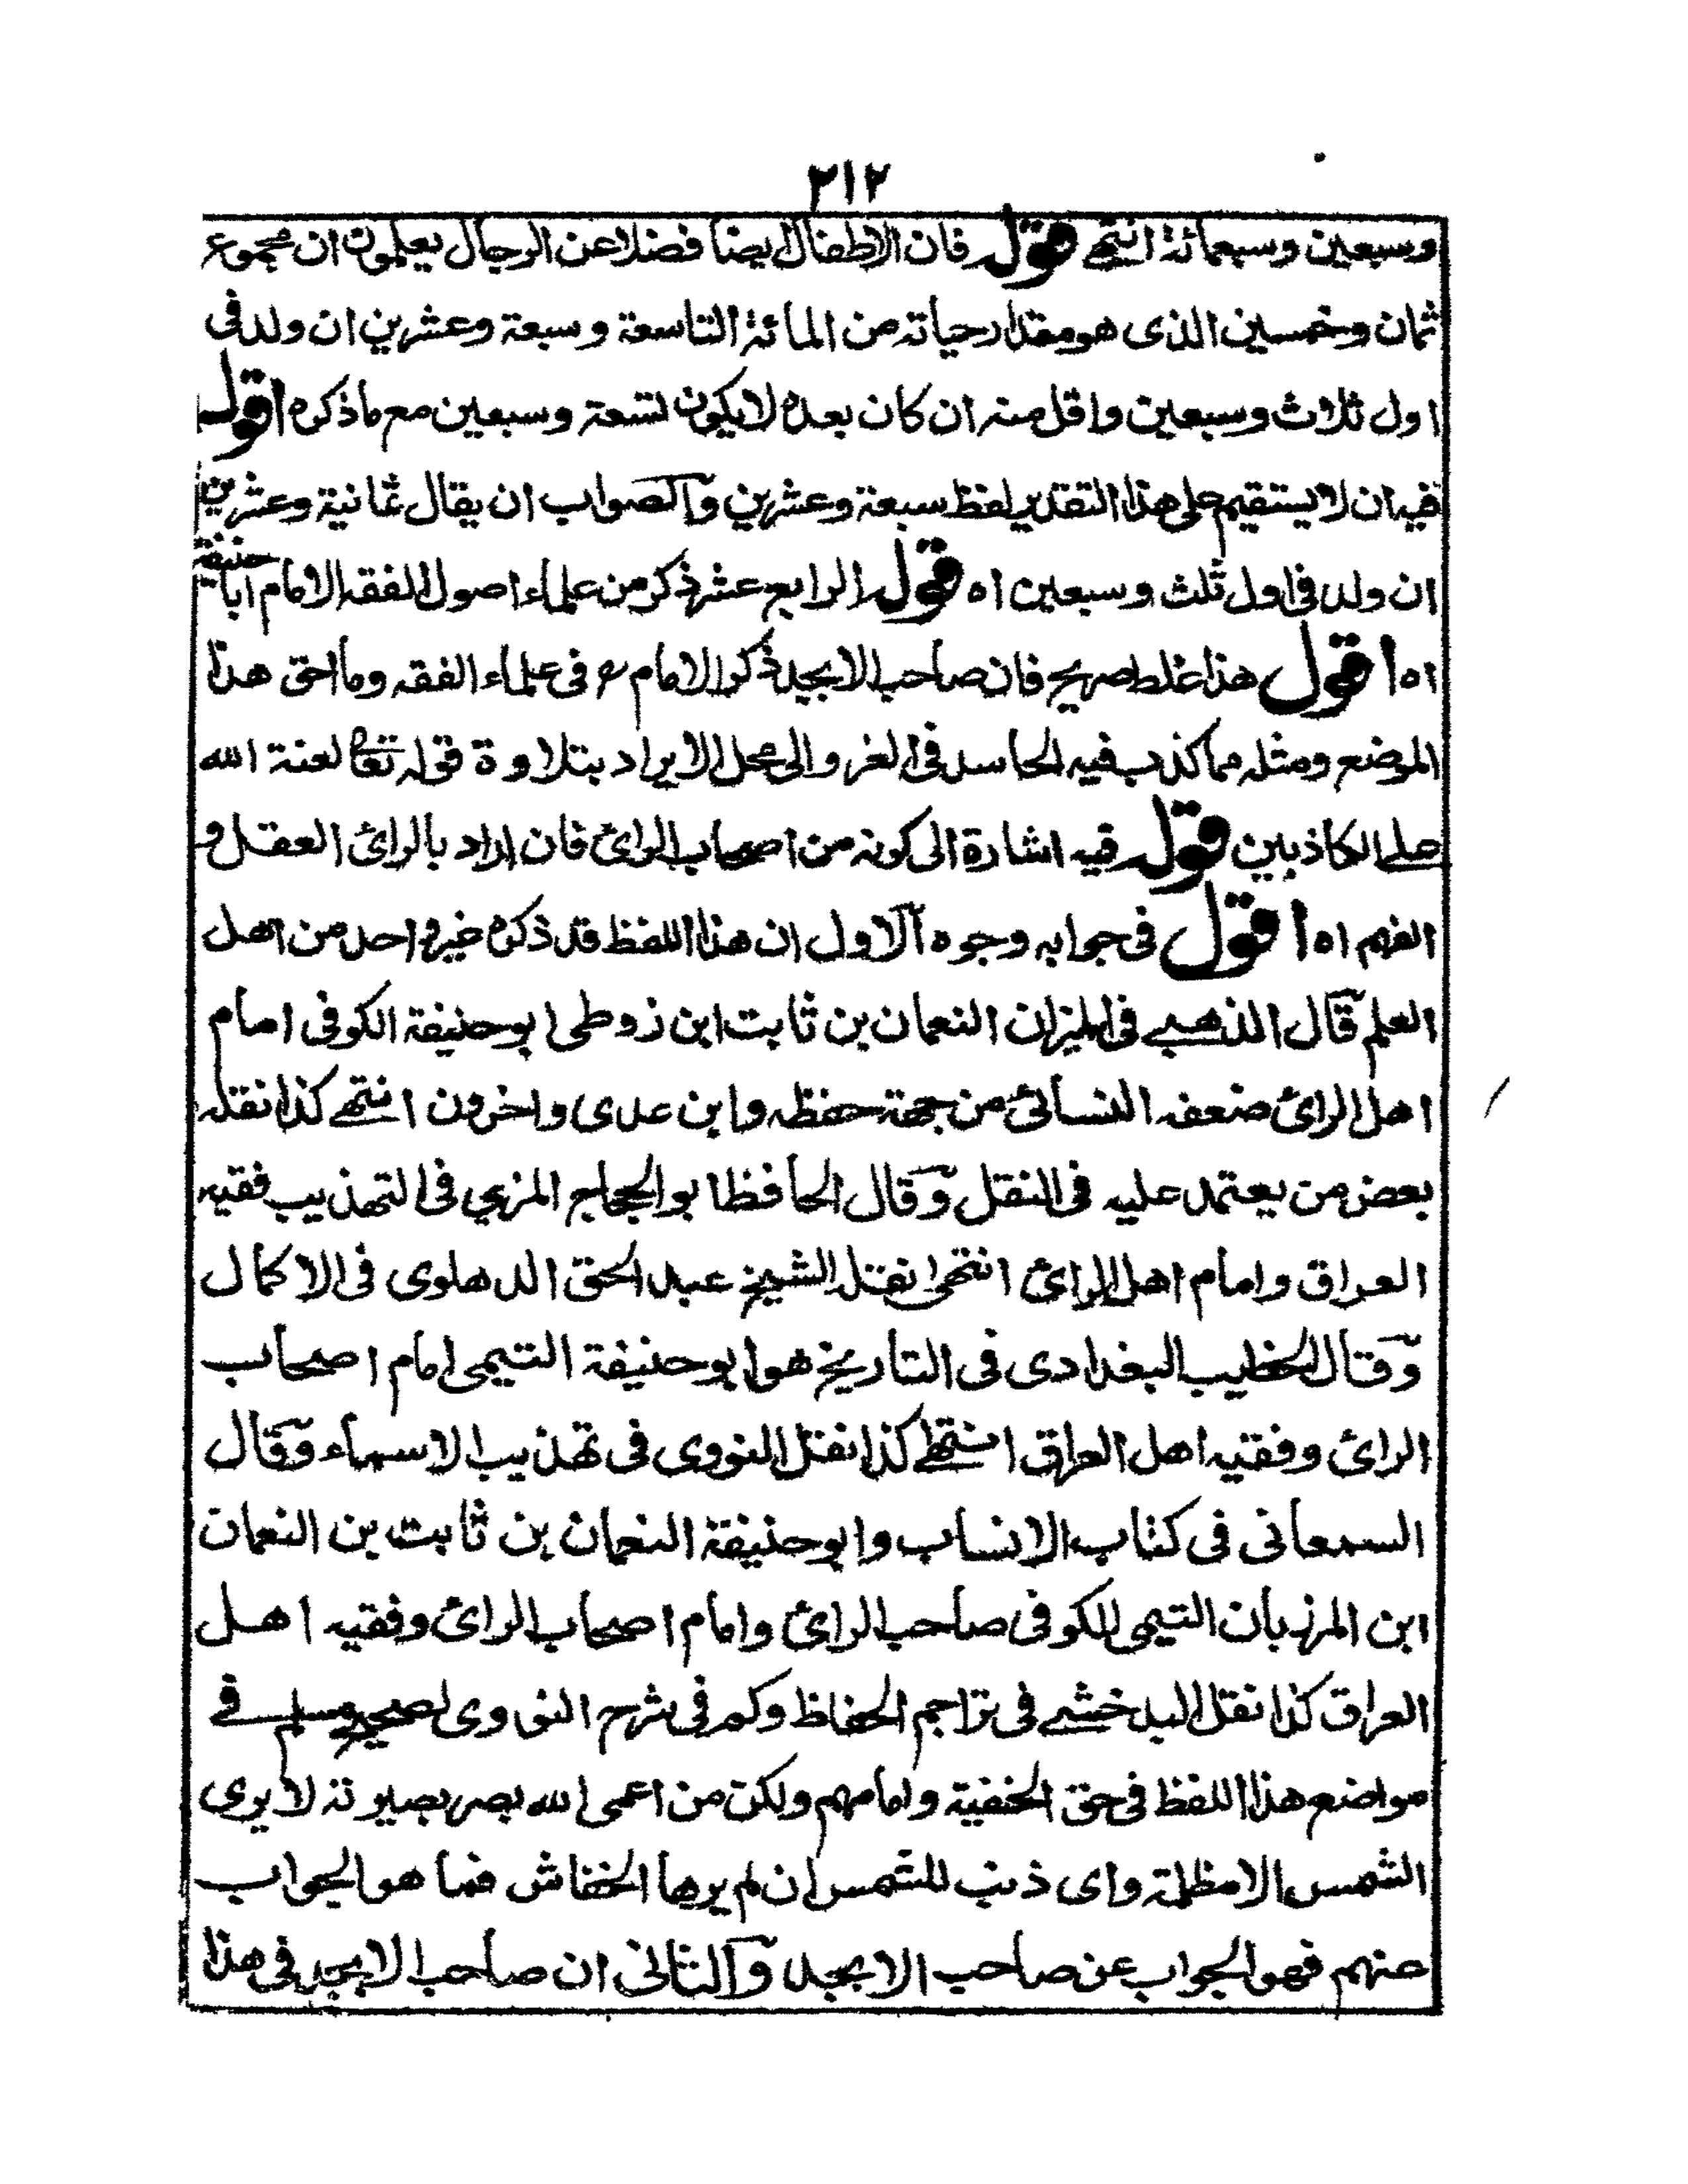 ٢١٢
وسبعين وسبعمائة انتهى قوله فان الاطفال ايضا فضلا عن الرجال يعلمون ان مجموع
ثمان وخمسين الذى هو مقدار حياته من المائة التاسعة وسبعة وعشرين ان ولد فى
اول ثلاث وسبعين واقل منه ان كان بعده لا يكون تسعة وسبعين مع ما ذكره اقول
فيه ان لا يستقيم على هذا التقدير لفظ سبعة وعشرين والصواب ان يقال ثمانية وعشرين
ان ولد فى اول ثلث وسبعين اه قوله الرابع عشر ذكر من علماء اصول الفقه الامام ابا حنيفة
اه اقول هذا غلط صريح فان صاحب الابجد ذكر الامام رح فى علماء الفقه وما احق هذا
الموضع ومثله مما كذب فيه الحاسد فى الغرو الى محل الايراد بتلاوة قوله تعالى لعنة الله
على الكاذبين قوله فيه اشارة الى كونه من اصحاب الرائ فان اراد بالرائ العقل و
الفهم اه اقول فى جوابه وجوه الاول ان هذا اللفظ قد ذكره غير واحد من اهل
العلم قال الذهبي فى الميزان النعمان بن ثابت ابن زوطى ابو حنيفة الكوفى امام
اهل الرائ ضعفه النسائى من جهة حفظه وابن عدى واخرون انتهى كذا نقله
بعض من يعتمد عليه فى النقل وقال الحافظ ابو الحجاج المزي فى التهذيب فقيه
العراق وامام اهل الرائ انتهى نقل الشيخ عبد الحق الدهلوى فى الاكمال
وقال الخطيب البغدادى فى التاريخ هو ابو حنيفة التيمى امام اصحاب
الرائ وفقيه اهل العراق انتهى كذا نقل النووى فى تهذيب الاسماء وقال
السمعانى فى كتاب الانساب وابو حنيفة النعمان بن ثابت بن النعمان
ابن المرزبان التيمى الكوفى صاحب الرائ وامام اصحاب الرائ وفقيه اهل
العراق كذا نقل البدخشي فى تراجم الحفاظ وكم فى شرح النووى لصحيح مسلم فى
مواضع هذا اللفظ فى حق الحنفية وامامهم ولكن من اعمى الله بصر بصيرته لا يرى
الشمس الا مظلمة واى ذنب للشمس ان لم يرها الخفاش فما هو الجواب
عنهم فهو الجواب عن صاحب الابجد والثانى ان صاحب الابجد فى هذا